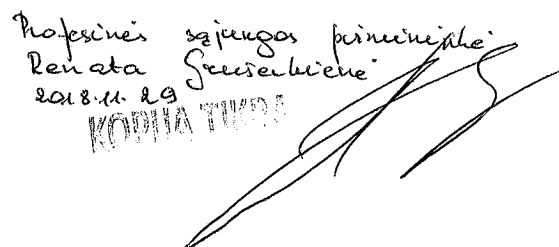 Profesinės sąjungos pirmininkė
Renata
2018.11.29
KOPIJA TIKRA